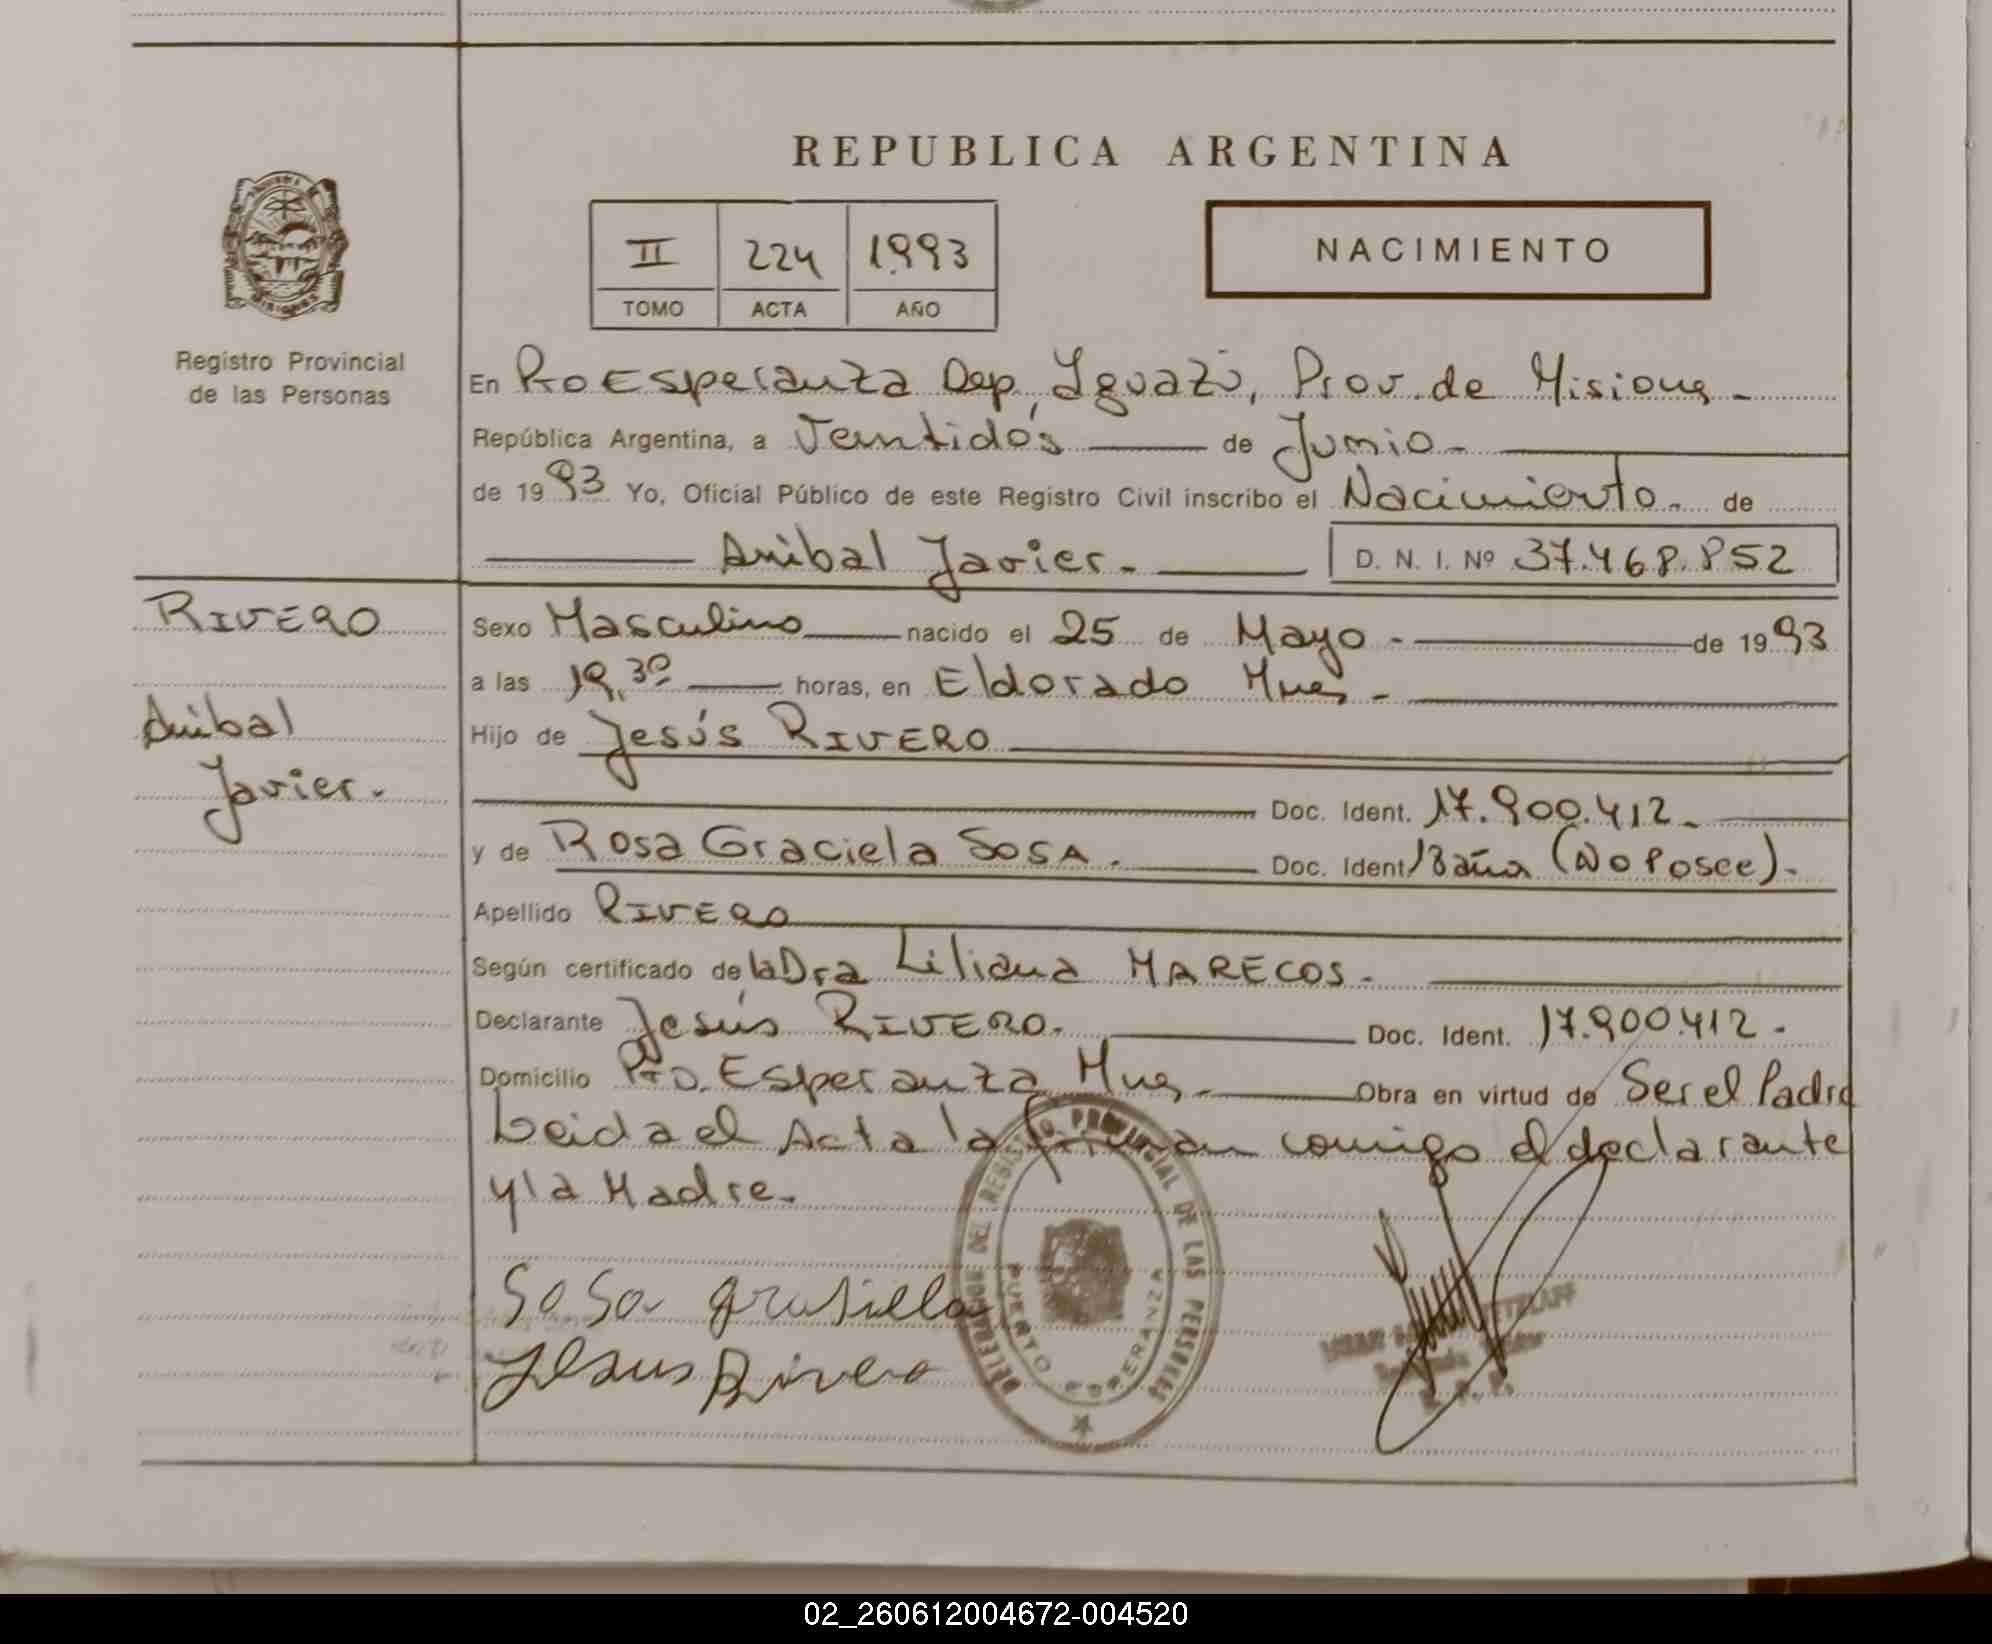 REPUBLICA ARGENTINA
II 224 1993
TOMO ACTA AÑO
NACIMIENTO
Registro Provincial
de las Personas
En Pto Esperanza Dep, Iguazú, Prov. de Misiones -
República Argentina, a Veintidós de Junio -
de 1993 Yo, Oficial Público de este Registro Civil inscribo el Nacimiento. de
Anibal Javier. - D. N. I. Nº 37.468.852
RIVERO
Anibal
Javier.
Sexo Masculino nacido el 25 de Mayo - de 1993
a las 19,30 horas, en Eldorado Mnes -
Hijo de Jesús RIVERO
Doc. Ident. 17.900.412 -
y de Rosa Graciela SOSA. Doc. Ident. (No Posee).
Apellido RIVERO
Según certificado de la Dra Liliana MARECOS -
Declarante Jesús RIVERO. Doc. Ident. 17.900.412 -
Domicilio Pto. Esperanza Mnes - Obra en virtud de Ser el Padre
Leida el Acta la firman conmigo el declarante
y la Madre.
DELEGACIONES DEL REGISTRO PROVINCIAL DE LAS PERSONAS
PUERTO ESPERANZA
SoSa
Jesus Rivero
02_260612004672-004520